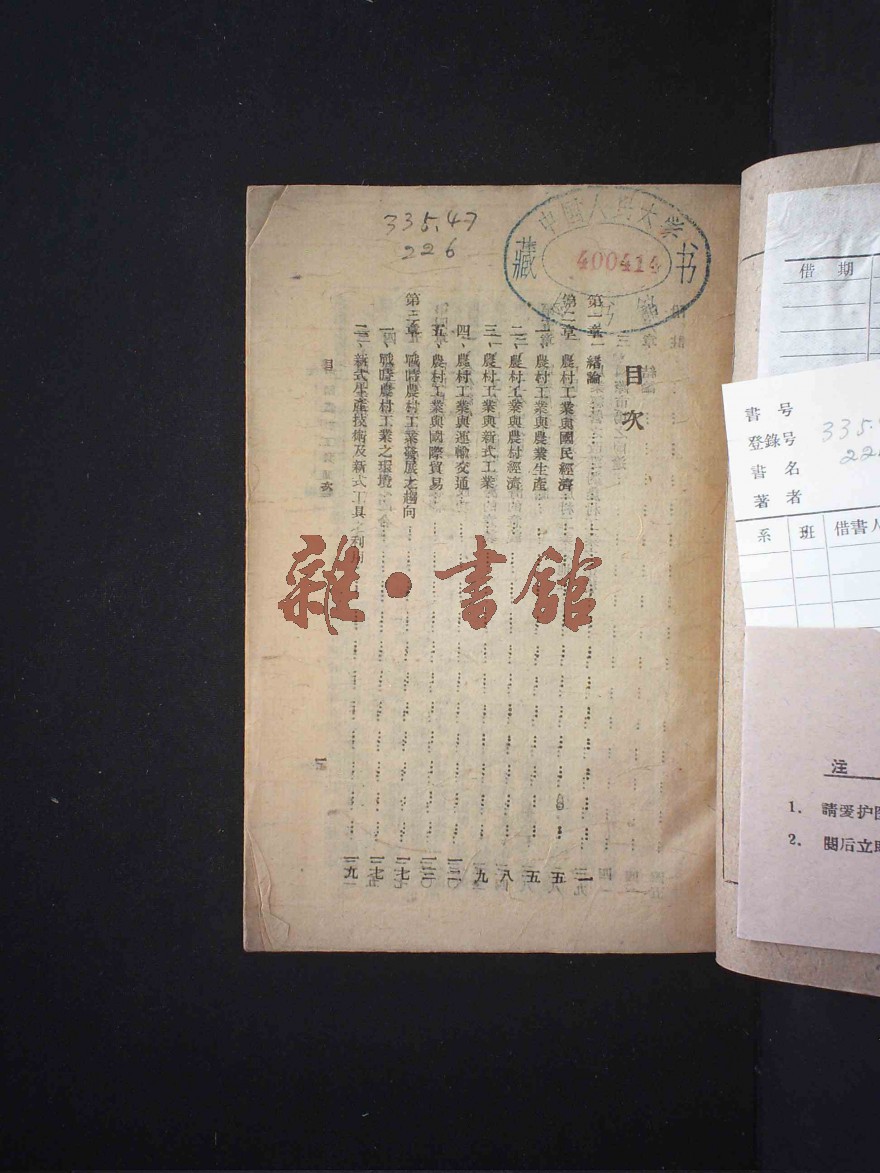 335.47
226
中國人民大学
藏
书
400414
目次
第一章 緒論 一
第二章 農村工業與國民經濟 五
一、農村工業與農業生產 五
二、農村工業與農村經濟 八
三、農村工業與新式工業 九
四、農村工業與運輸交通 一二
五、農村工業與國際貿易 一三
第三章 戰時農村工業發展之趨向 一七
一、戰時農村工業之環境 一七
二、新式生產技術及新式工具之利用 一九
目次
一
雜·書館
借期
書号
登錄号
335.
書名
22
著者
系 班 借書人
注
1. 請爱护
2. 閱后立